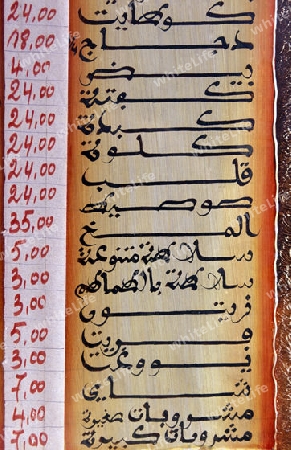 24,00
دجاج 18,00
بيض 4,00
كفتة 24,00
كبدة 24,00
كلوة 24,00
قلب 24,00
24,00
المخ 35,00
سلاطة متنوعة 5,00
سلاطة بالطماطم 3,00
زيتون 3,00
فريت 5,00
3,00
شاي 7,00
مشروبات صغيرة 4,00
مشروبات كبيرة 7,00